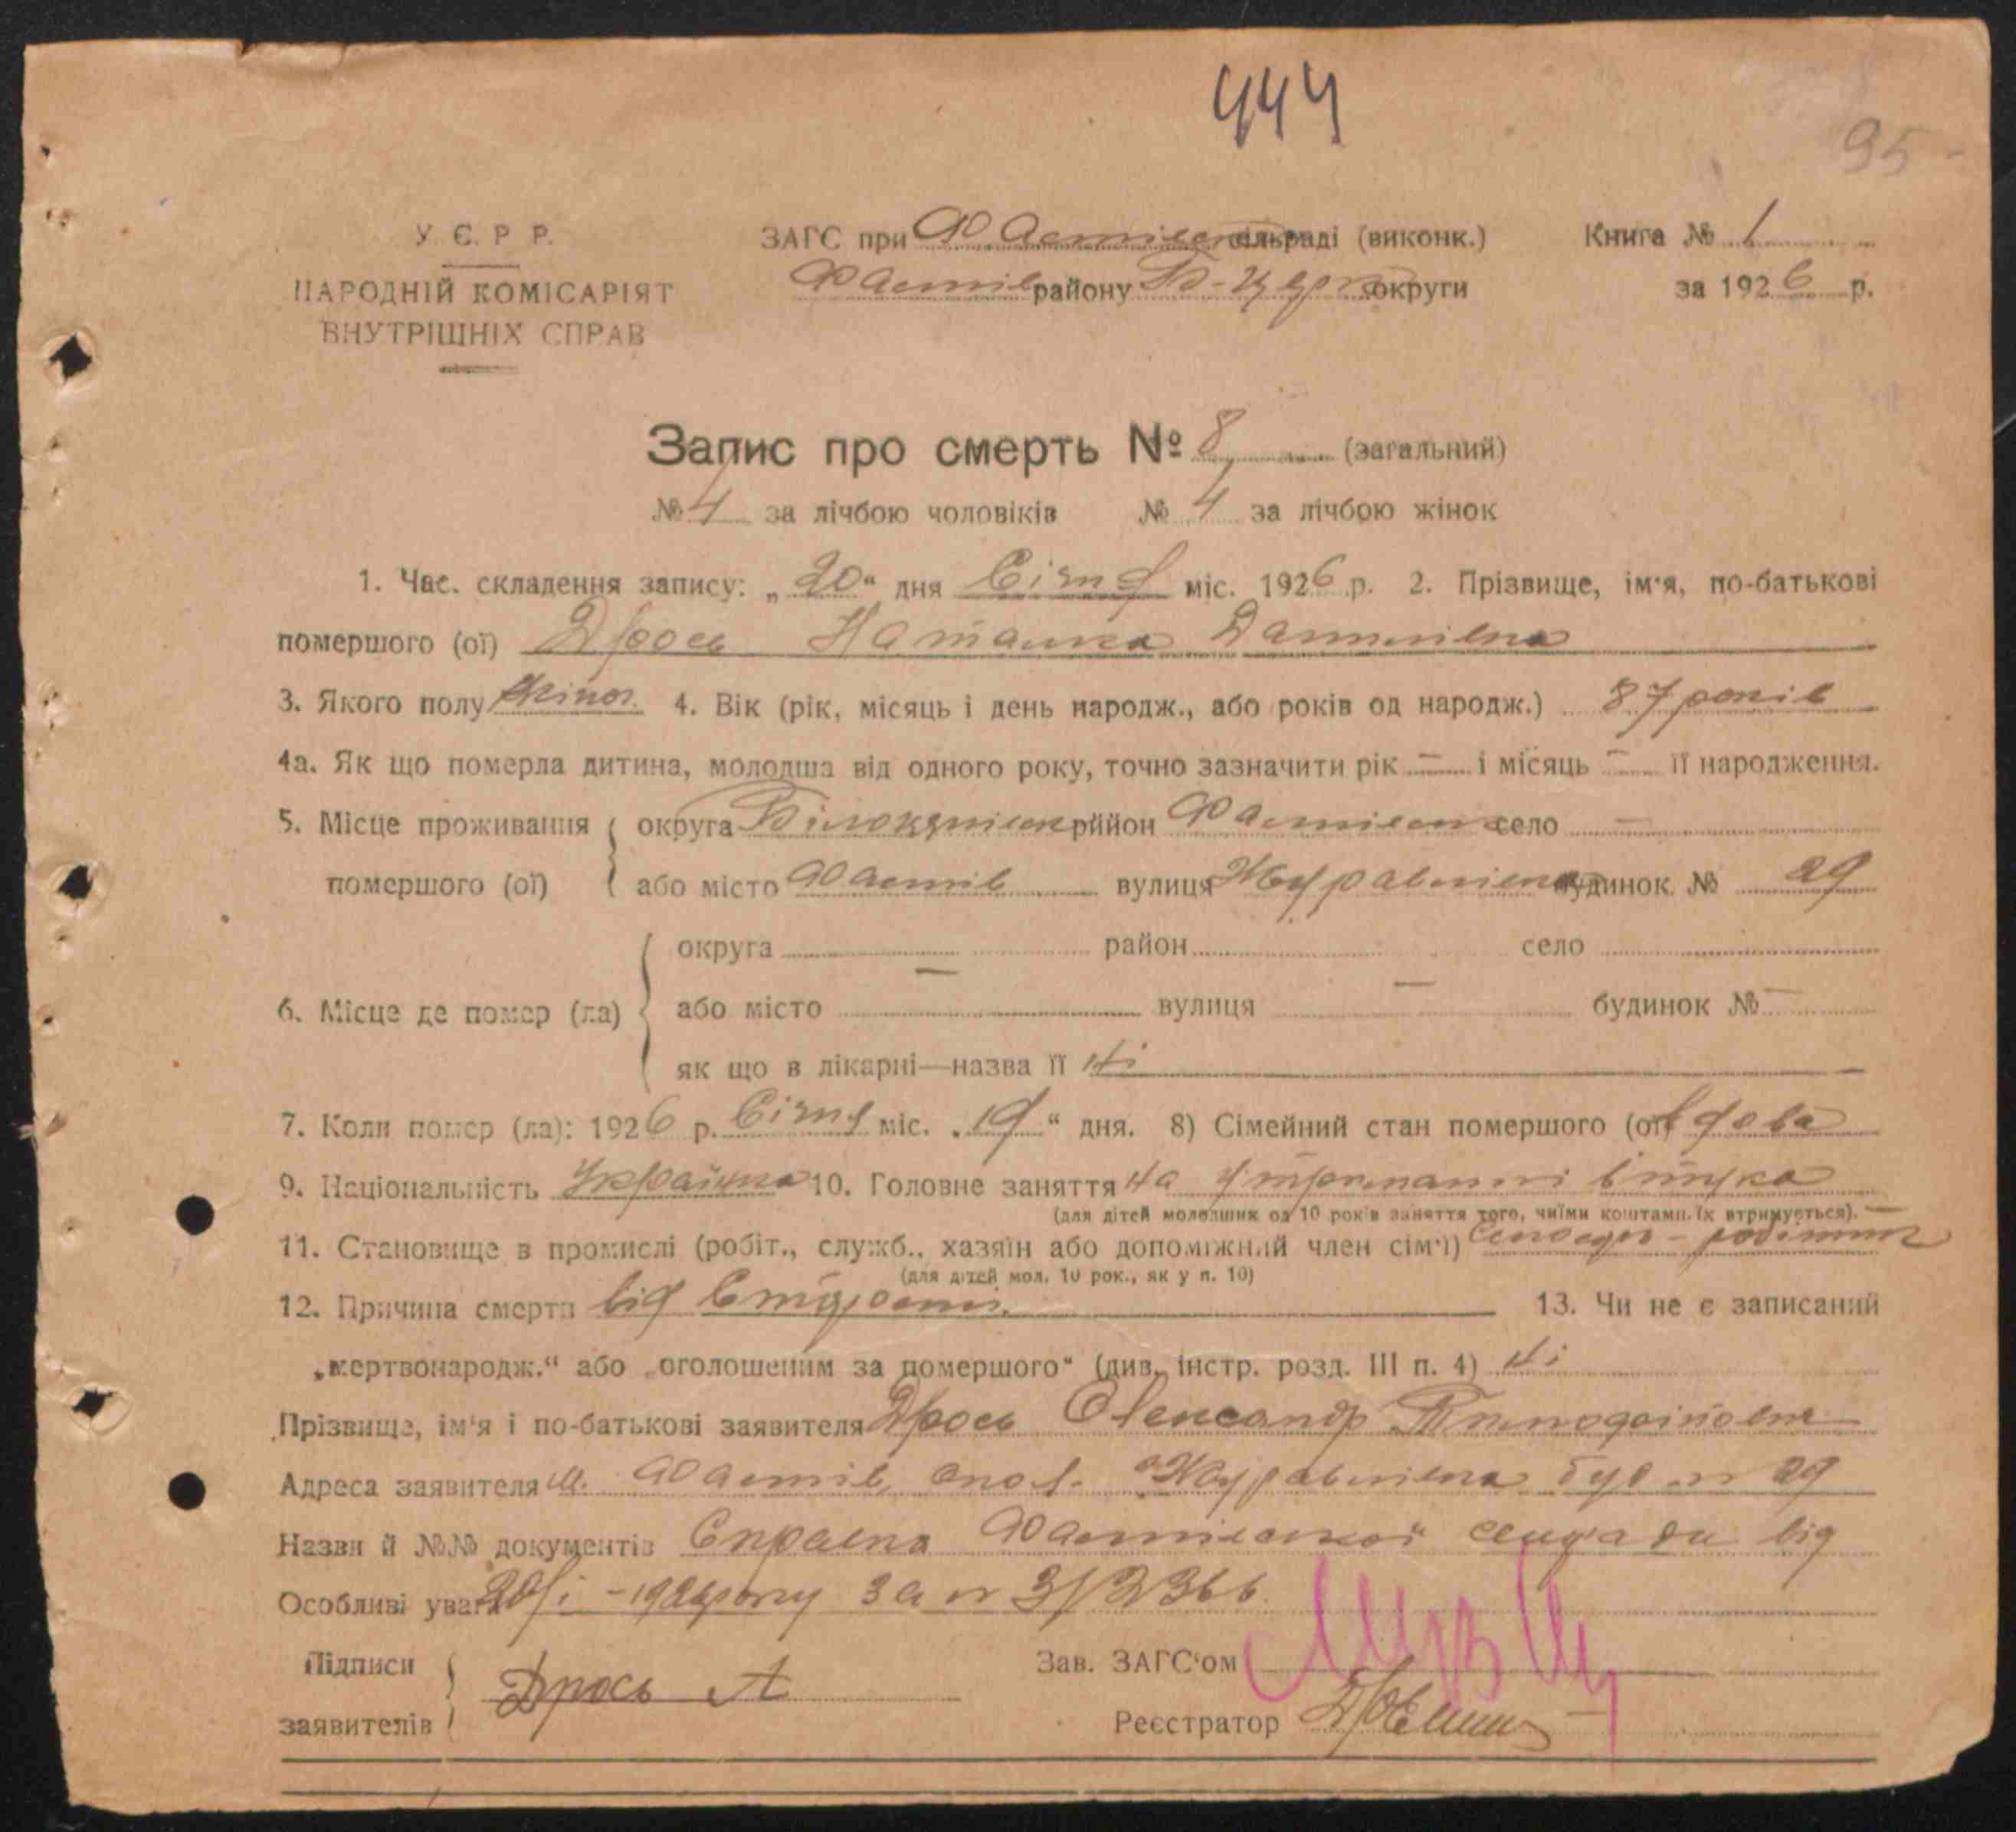 444
95
У. С. Р. Р.
НАРОДНІЙ КОМІСАРІЯТ
ВНУТРІШНІХ СПРАВ
ЗАГС при Фастівській сільраді (виконк.)
Фастів району Б-Церк округи
Книга № 1
за 1926 р.
Запис про смерть № 8 (загальний)
№ 4 за лічбою чоловіків № 4 за лічбою жінок
1. Час. складення запису: „20“ дня Січня міс. 1926 р. 2. Прізвище, ім'я, по-батькові
помершого (ої) Дрось Наталка Данилівна
3. Якого полу жіноч. 4. Вік (рік, місяць і день народж., або років од народж.) 87 років
4а. Як що померла дитина, молодша від одного року, точно зазначити рік — і місяць — її народження.
5. Місце проживання округа Білоцерківськ район Фастівськ село —
помершого (ої) або місто Фастів вулиця Журавлівка будинок № 29
округа — район — село
6. Місце де помер (ла)
або місто вулиця будинок № —
як що в лікарні—назва її Ні
7. Коли помер (ла): 1926 р. Січня міс. „19“ дня. 8) Сімейний стан помершого (ої) вдова
9. Національність Українка 10. Головне заняття на утриманні внука
(для дітей молодших од 10 років заняття того, чиїми коштами їх втримується).
11. Становище в промислі (робіт., служб., хазяїн або допоміжний член сім'ї)
(для дітей мол. 10 рок., як у п. 10)
12. Причина смерти від старости. 13. Чи не є записаний
„мертвонародж.“ або „оголошеним за помершого“ (див. інстр. розд. III п. 4) Ні
Прізвище, ім'я і по-батькові заявителя Дрось Олександр
Адреса заявителя м. Фастів, Журавлівка буд № 29
Назви й №№ документів Справка Фастівської сельради від
Особливі уваги 20/І - 1926 року за № 3/2366.
Підписи
заявителів
Дрось А
Зав. ЗАГС'ом
Реєстратор